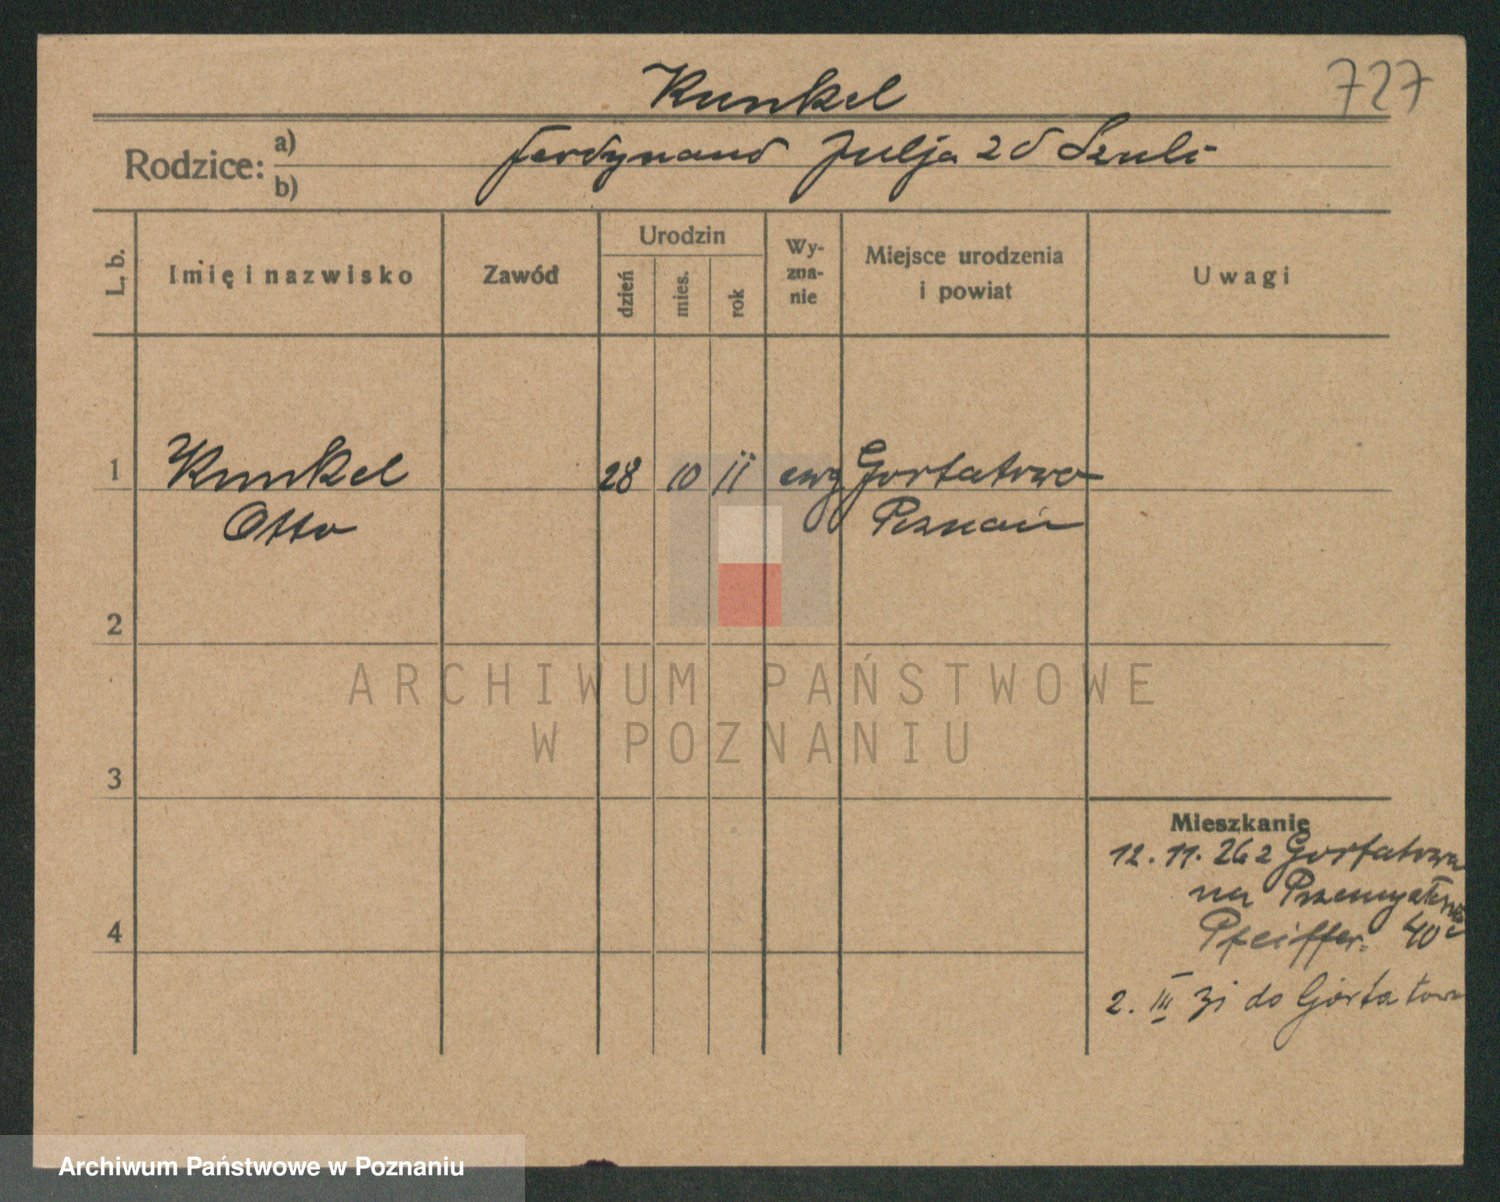 Kunkel
727
Rodzice: a)
b)
Ferdynand Julja zd Szulc
L. b.
Imię i nazwisko
Zawód
Urodzin
dzień
mies.
rok
Wy-
zna-
nie
Miejsce urodzenia
i powiat
Uwagi
1
Kunkel
28 10 11 ewg Gortatowo
Otto
Poznań
2
ARCHIWUM PAŃSTWOWE
W POZNANIU
3
Mieszkanie
12. 11. 26 z Gortatowa
na
Pfeiffer. 40
4
2. III 31 do Gortatowa
Archiwum Państwowe w Poznaniu